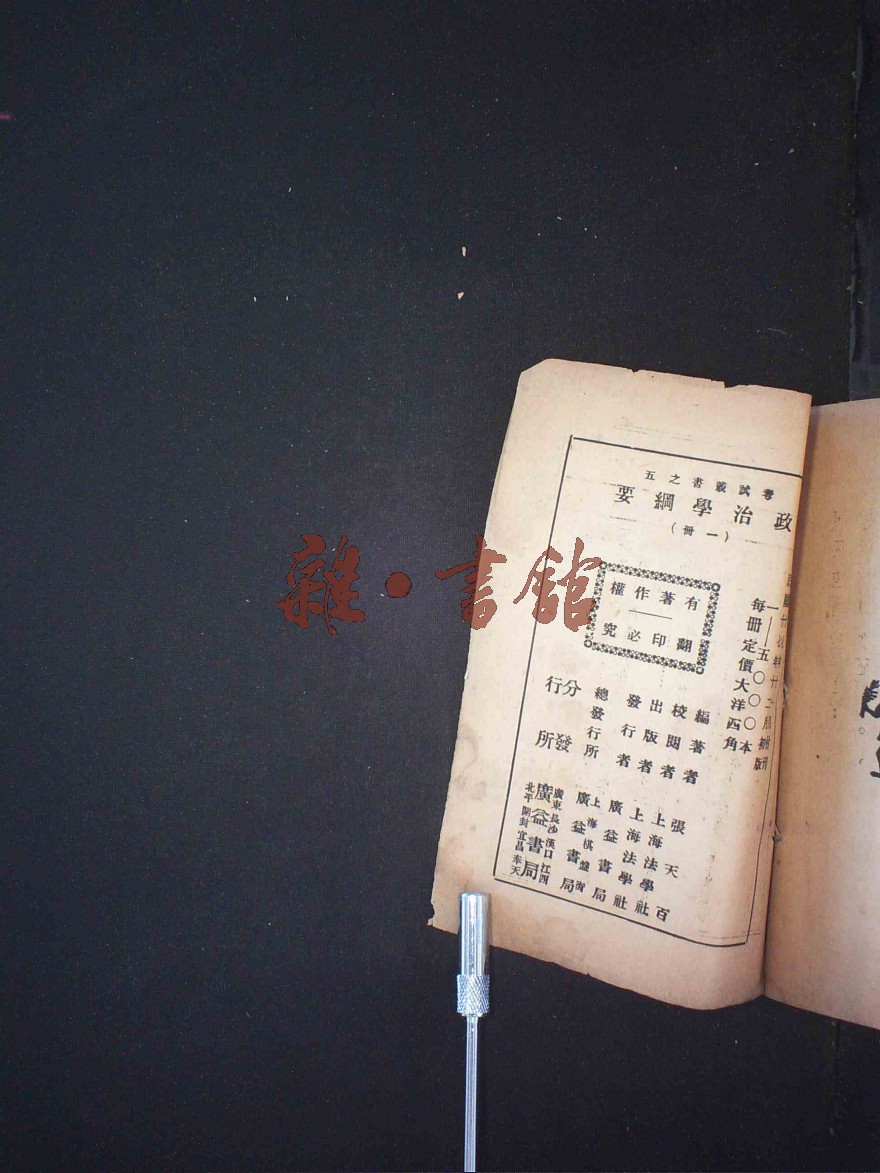 考試叢書之五
政治學綱要
(一冊)
有著作權
翻印必究
一——五〇〇〇本
每冊定價大洋四角
編著者 張天百
校閱者 上海法學社
出版者 上海法學社
發行者 廣益書局
總發行所 上海棋盤街 廣益書局
分發行所 廣東 長沙 漢口 江西 廣益書局 北平 開封 宜昌 奉天
雜·書館